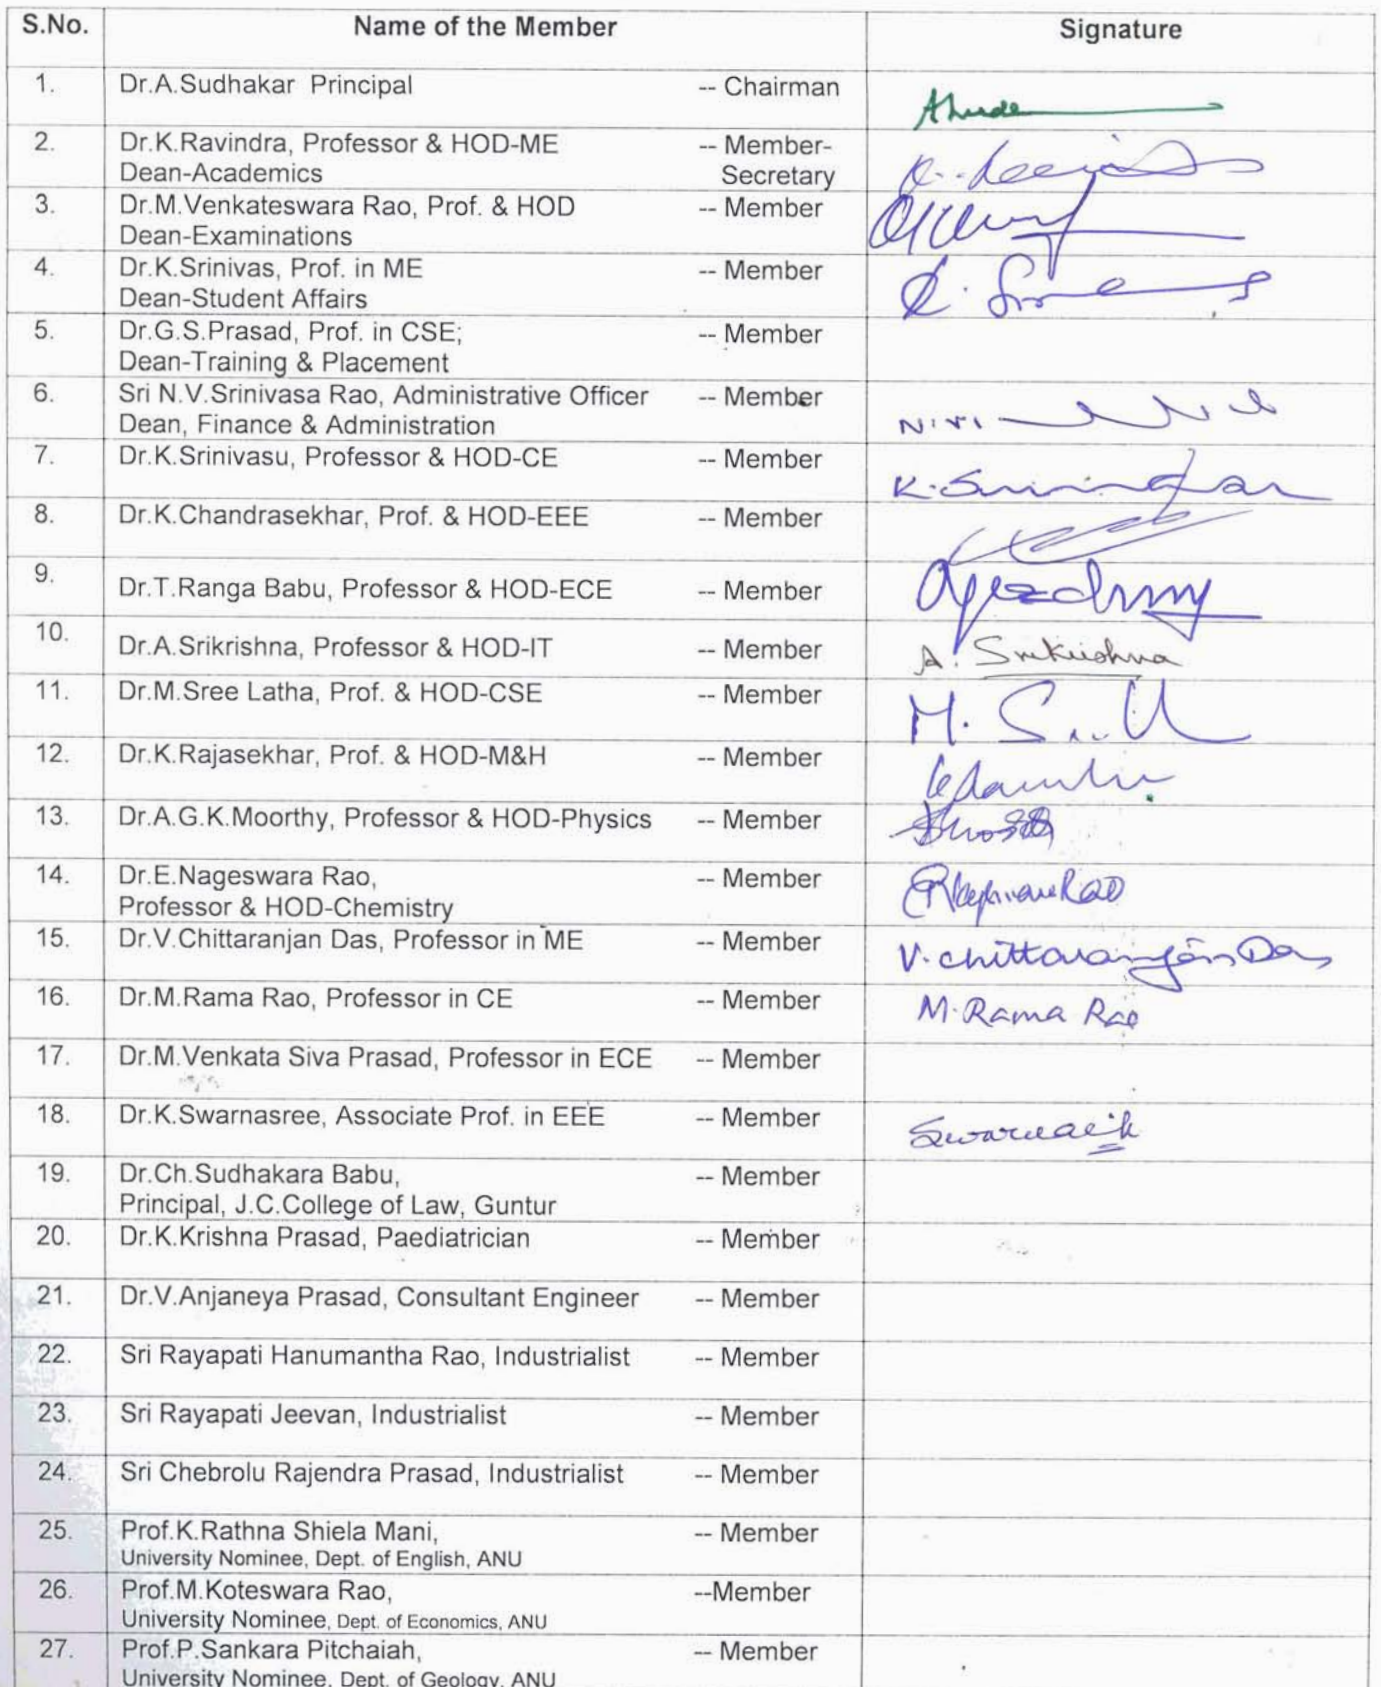 S.No. Name of the Member Signature
1. Dr.A.Sudhakar Principal -- Chairman
2. Dr.K.Ravindra, Professor & HOD-ME -- Member-
Dean-Academics Secretary
3. Dr.M.Venkateswara Rao, Prof. & HOD -- Member
Dean-Examinations
4. Dr.K.Srinivas, Prof. in ME -- Member
Dean-Student Affairs
5. Dr.G.S.Prasad, Prof. in CSE; -- Member
Dean-Training & Placement
6. Sri N.V.Srinivasa Rao, Administrative Officer -- Member
Dean, Finance & Administration
7. Dr.K.Srinivasu, Professor & HOD-CE -- Member
8. Dr.K.Chandrasekhar, Prof. & HOD-EEE -- Member
9. Dr.T.Ranga Babu, Professor & HOD-ECE -- Member
10. Dr.A.Srikrishna, Professor & HOD-IT -- Member A. Srikrishna
11. Dr.M.Sree Latha, Prof. & HOD-CSE -- Member
12. Dr.K.Rajasekhar, Prof. & HOD-M&H -- Member
13. Dr.A.G.K.Moorthy, Professor & HOD-Physics -- Member
14. Dr.E.Nageswara Rao, -- Member
Professor & HOD-Chemistry
15. Dr.V.Chittaranjan Das, Professor in ME -- Member V. Chittaranjan Das
16. Dr.M.Rama Rao, Professor in CE -- Member M. Rama Rao
17. Dr.M.Venkata Siva Prasad, Professor in ECE -- Member
18. Dr.K.Swarnasree, Associate Prof. in EEE -- Member
19. Dr.Ch.Sudhakara Babu, -- Member
Principal, J.C.College of Law, Guntur
20. Dr.K.Krishna Prasad, Paediatrician -- Member
21. Dr.V.Anjaneya Prasad, Consultant Engineer -- Member
22. Sri Rayapati Hanumantha Rao, Industrialist -- Member
23. Sri Rayapati Jeevan, Industrialist -- Member
24. Sri Chebrolu Rajendra Prasad, Industrialist -- Member
25. Prof.K.Rathna Shiela Mani, -- Member
University Nominee, Dept. of English, ANU
26. Prof.M.Koteswara Rao, --Member
University Nominee, Dept. of Economics, ANU
27. Prof.P.Sankara Pitchaiah, -- Member
University Nominee, Dept. of Geology, ANU